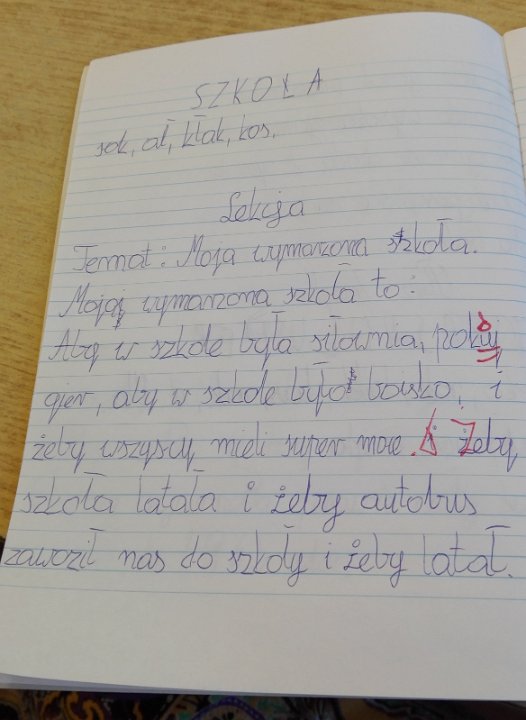 SZKOŁA
sok, ał, kłak, kos.
Lekcja
Temat: Moja wymarzona szkoła.
Moja wymarzona szkoła to:
Aby w szkole była siłownia, pokuj
gier, aby w szkole było boisko, i
żeby wszyscy mieli super moce. i Żeby
szkoła latała i żeby autobus
zawoził nas do szkoły i żeby latał.